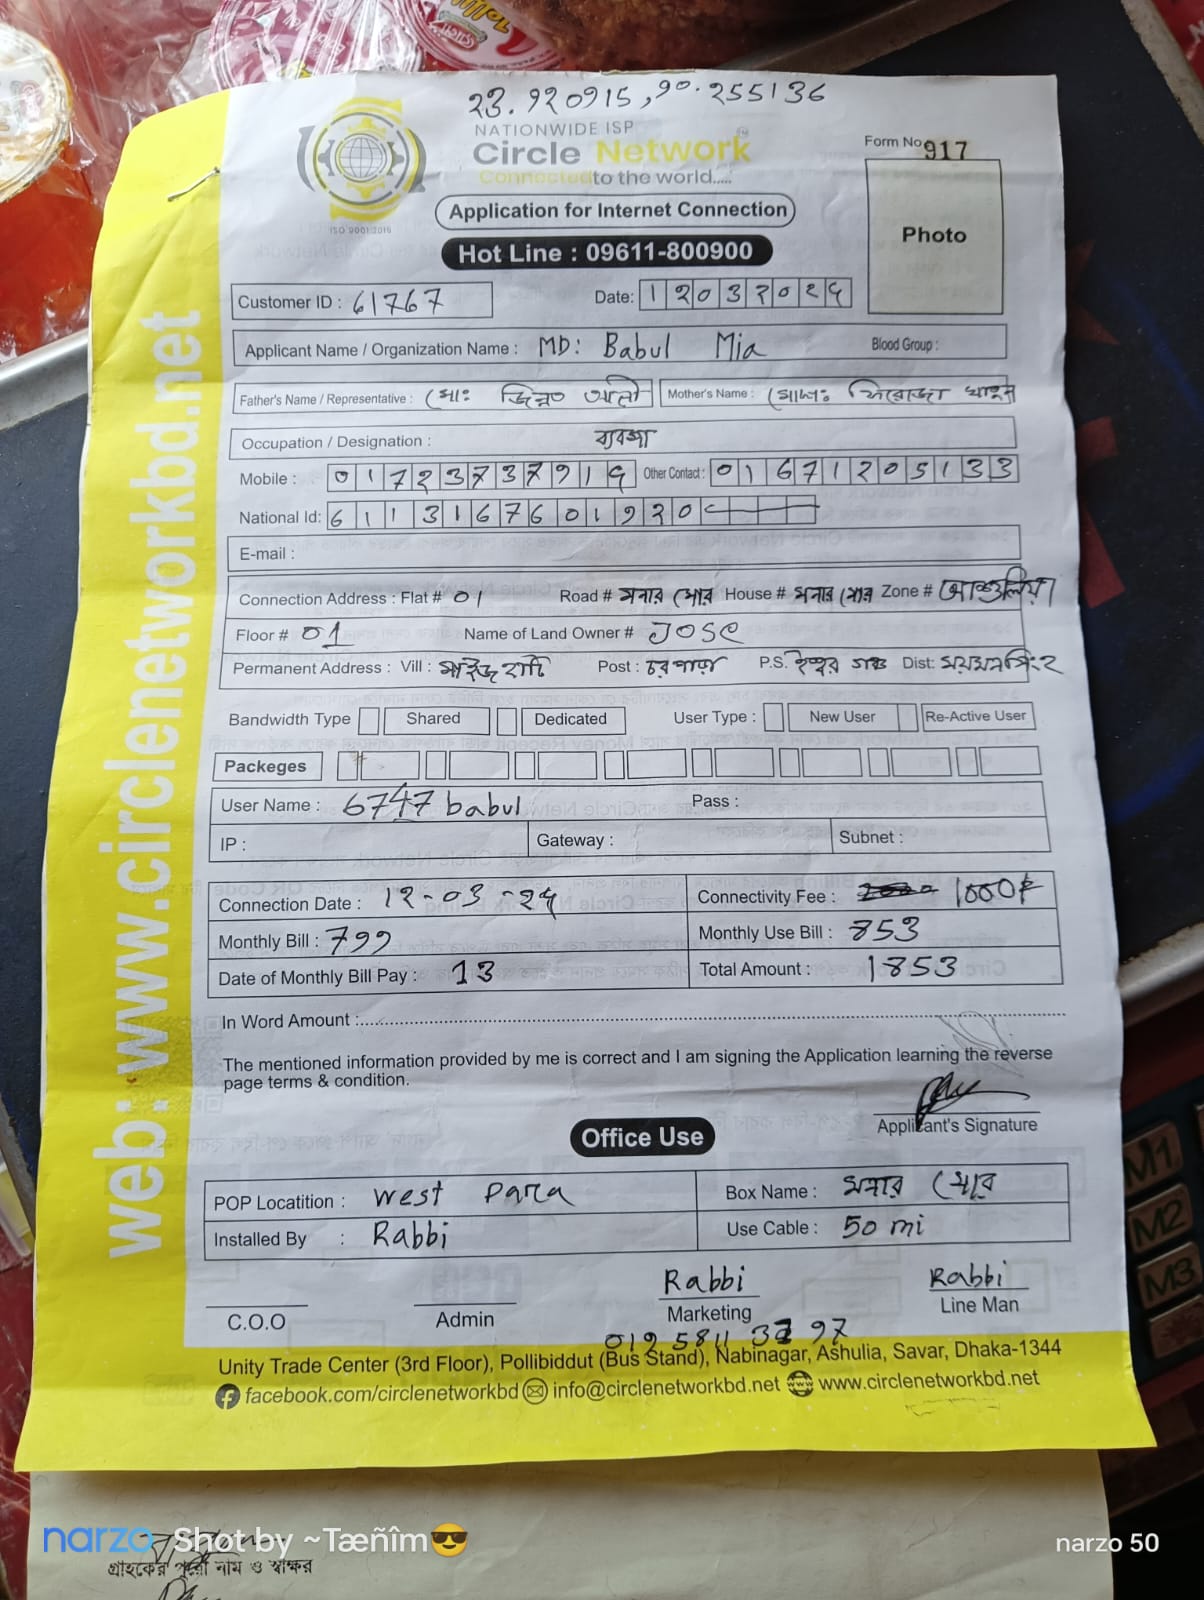 23.920915, 90.255136
NATIONWIDE ISP
Circle Network
Connected to the world.....
ISO 9001:2015
Form No 917
Photo
Application for Internet Connection
Hot Line : 09611-800900
Customer ID : 61767
Date: 12032024
Applicant Name / Organization Name : MD: Babul Mia Blood Group :
Father's Name / Representative : মোঃ জিন্নত আলী Mother's Name : মোছাঃ ফিরোজা
Occupation / Designation : ব্যবসা
Mobile : 01723737914 Other Contact : 01671205133
National Id: 6113167601920
E-mail :
Connection Address : Flat # 01 Road # House # Zone # আশুলিয়া
Floor # 01 Name of Land Owner # JOSC
Permanent Address : Vill : মাইজহাটি Post : চরপাড়া P.S. ঈশ্বরগঞ্জ Dist: ময়মনসিংহ
Bandwidth Type Shared Dedicated User Type : New User Re-Active User
Packeges
User Name : 6747babul Pass :
IP : Gateway : Subnet :
Connection Date : 12-03-24 Connectivity Fee : 1000৳
Monthly Bill : 799 Monthly Use Bill : 853
Date of Monthly Bill Pay : 13 Total Amount : 1853
In Word Amount :
The mentioned information provided by me is correct and I am signing the Application learning the reverse
page terms & condition.
Applicant's Signature
Office Use
POP Locatition : West Para Box Name :
Installed By : Rabbi Use Cable : 50 mi
Rabbi Rabbi
C.O.O Admin Marketing Line Man
Unity Trade Center (3rd Floor), Pollibiddut (Bus Stand), Nabinagar, Ashulia, Savar, Dhaka-1344
facebook.com/circlenetworkbd info@circlenetworkbd.net www.circlenetworkbd.net
web: www.circlenetworkbd.net
M1
M2
M3
narzo Shot by ~Tæñîm😎 narzo 50
গ্রাহকের পুরো নাম ও স্বাক্ষর